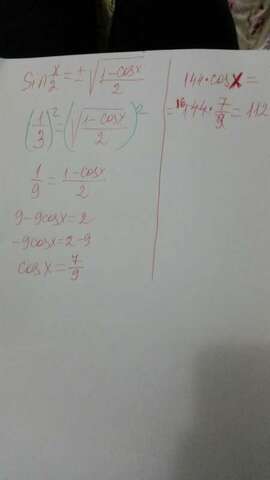 sin x/2 = ±√((1-cosx)/2)
(1/3)² = (√((1-cosx)/2))²
1/9 = (1-cosx)/2
9-9cosx=2
-9cosx=2-9
cosx=7/9
144·cosx=
=¹⁶144·7/9=112